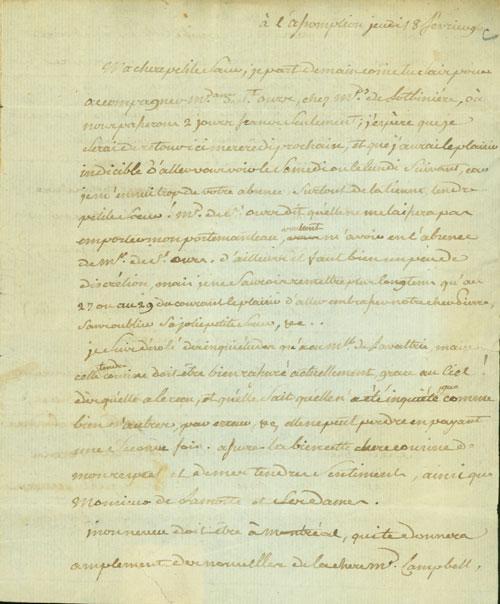 à l'assomption jeudi 18 février
Ma chere petite Sœur, je part demain come tu sair pour
accompagner Md. de St. Ours, chez Md. de Lotbiniere, où
nour passeronr 2 jourr francr seulement; j'espère que je
serai de retour ici mercredi prochain, et que j'aurai le plaisir
indicible d'aller vour voir le Samedi ou le lundi suivant, car
je m'ennui trop de votre absence, surtout de la tienne, tendre
petite Sœur! Md. de St. Ourr dit qu'elle ne me laissera par
emporter mon portemanteau, voulant m'avoir en l'absence
de Mr. de St. Ourr. d'ailleurr il faut bien un peu de
discrétion, mair je ne saurois remettre plur longtems qu'au
27 ou au 29 du courant le plaisir d'aller embrasser notre cher Pierre,
sanr oublier sa jolie petite Sœur, &c..
je suir désolé der inquiétuder qu'a eu Mlle de Lavaltrie, mair
cette tendre cousine doit être bien rassuré actuellement, grace au Ciel!
dèr qu'elle a le reçu, et qu'elle sait qu'elle n'a été inquiété que comme
bien d'autrer, par erreur, &c, elle ne peut perdre en payant
une seconde foir. assure la bien cette chere cousine de
mon respect et de mer tendrer sentiment, ainsi que
Monsieur de Lamotte et ser Damer.
mon neveu doit être à Montréal, qui te donnera
amplement der nouveller de la chere Md. Campbell,